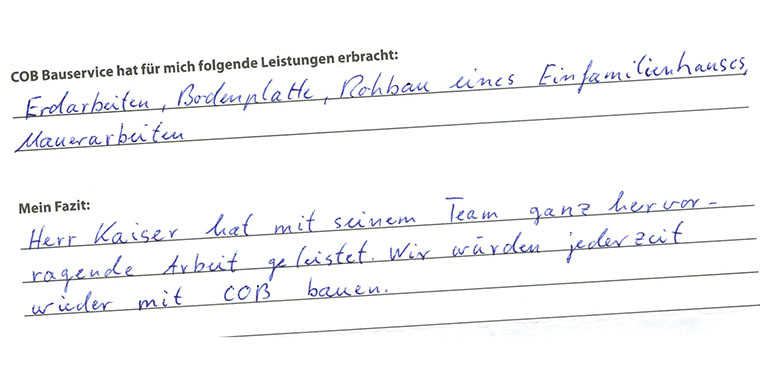 COB Bauservice hat für mich folgende Leistungen erbracht:
Erdarbeiten, Bodenplatte, Rohbau eines Einfamilienhauses,
Mauerarbeiten
Mein Fazit:
Herr Kaiser hat mit seinem Team ganz hervor-
ragende Arbeit geleistet. Wir würden jederzeit
wieder mit COB bauen.